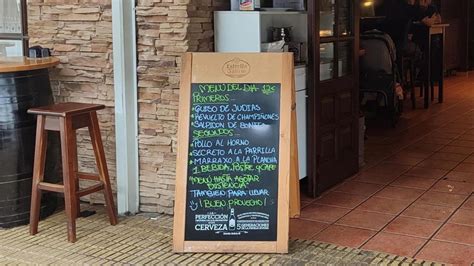 Estrella
Galicia
MENÚ DEL DIA 12€
PRIMEROS...
*GUISO DE JUDIAS
*REVUELTO DE CHAMPIÑONES
*SALPICON DE BONITO
SEGUNDOS...
*POLLO AL HORNO
*SECRETO A LA PARRILLA
*MARRAXO A LA PLANCHA
1 BEBIDA, POSTRE Y CAFE
*MENÚ HASTA AGOTAR
EXISTENCIA
TAMBIEN PARA LLEVAR
¡BUEN PROVECHO!
PERFECCIÓN
CERVEZA
5 GENERACIONES